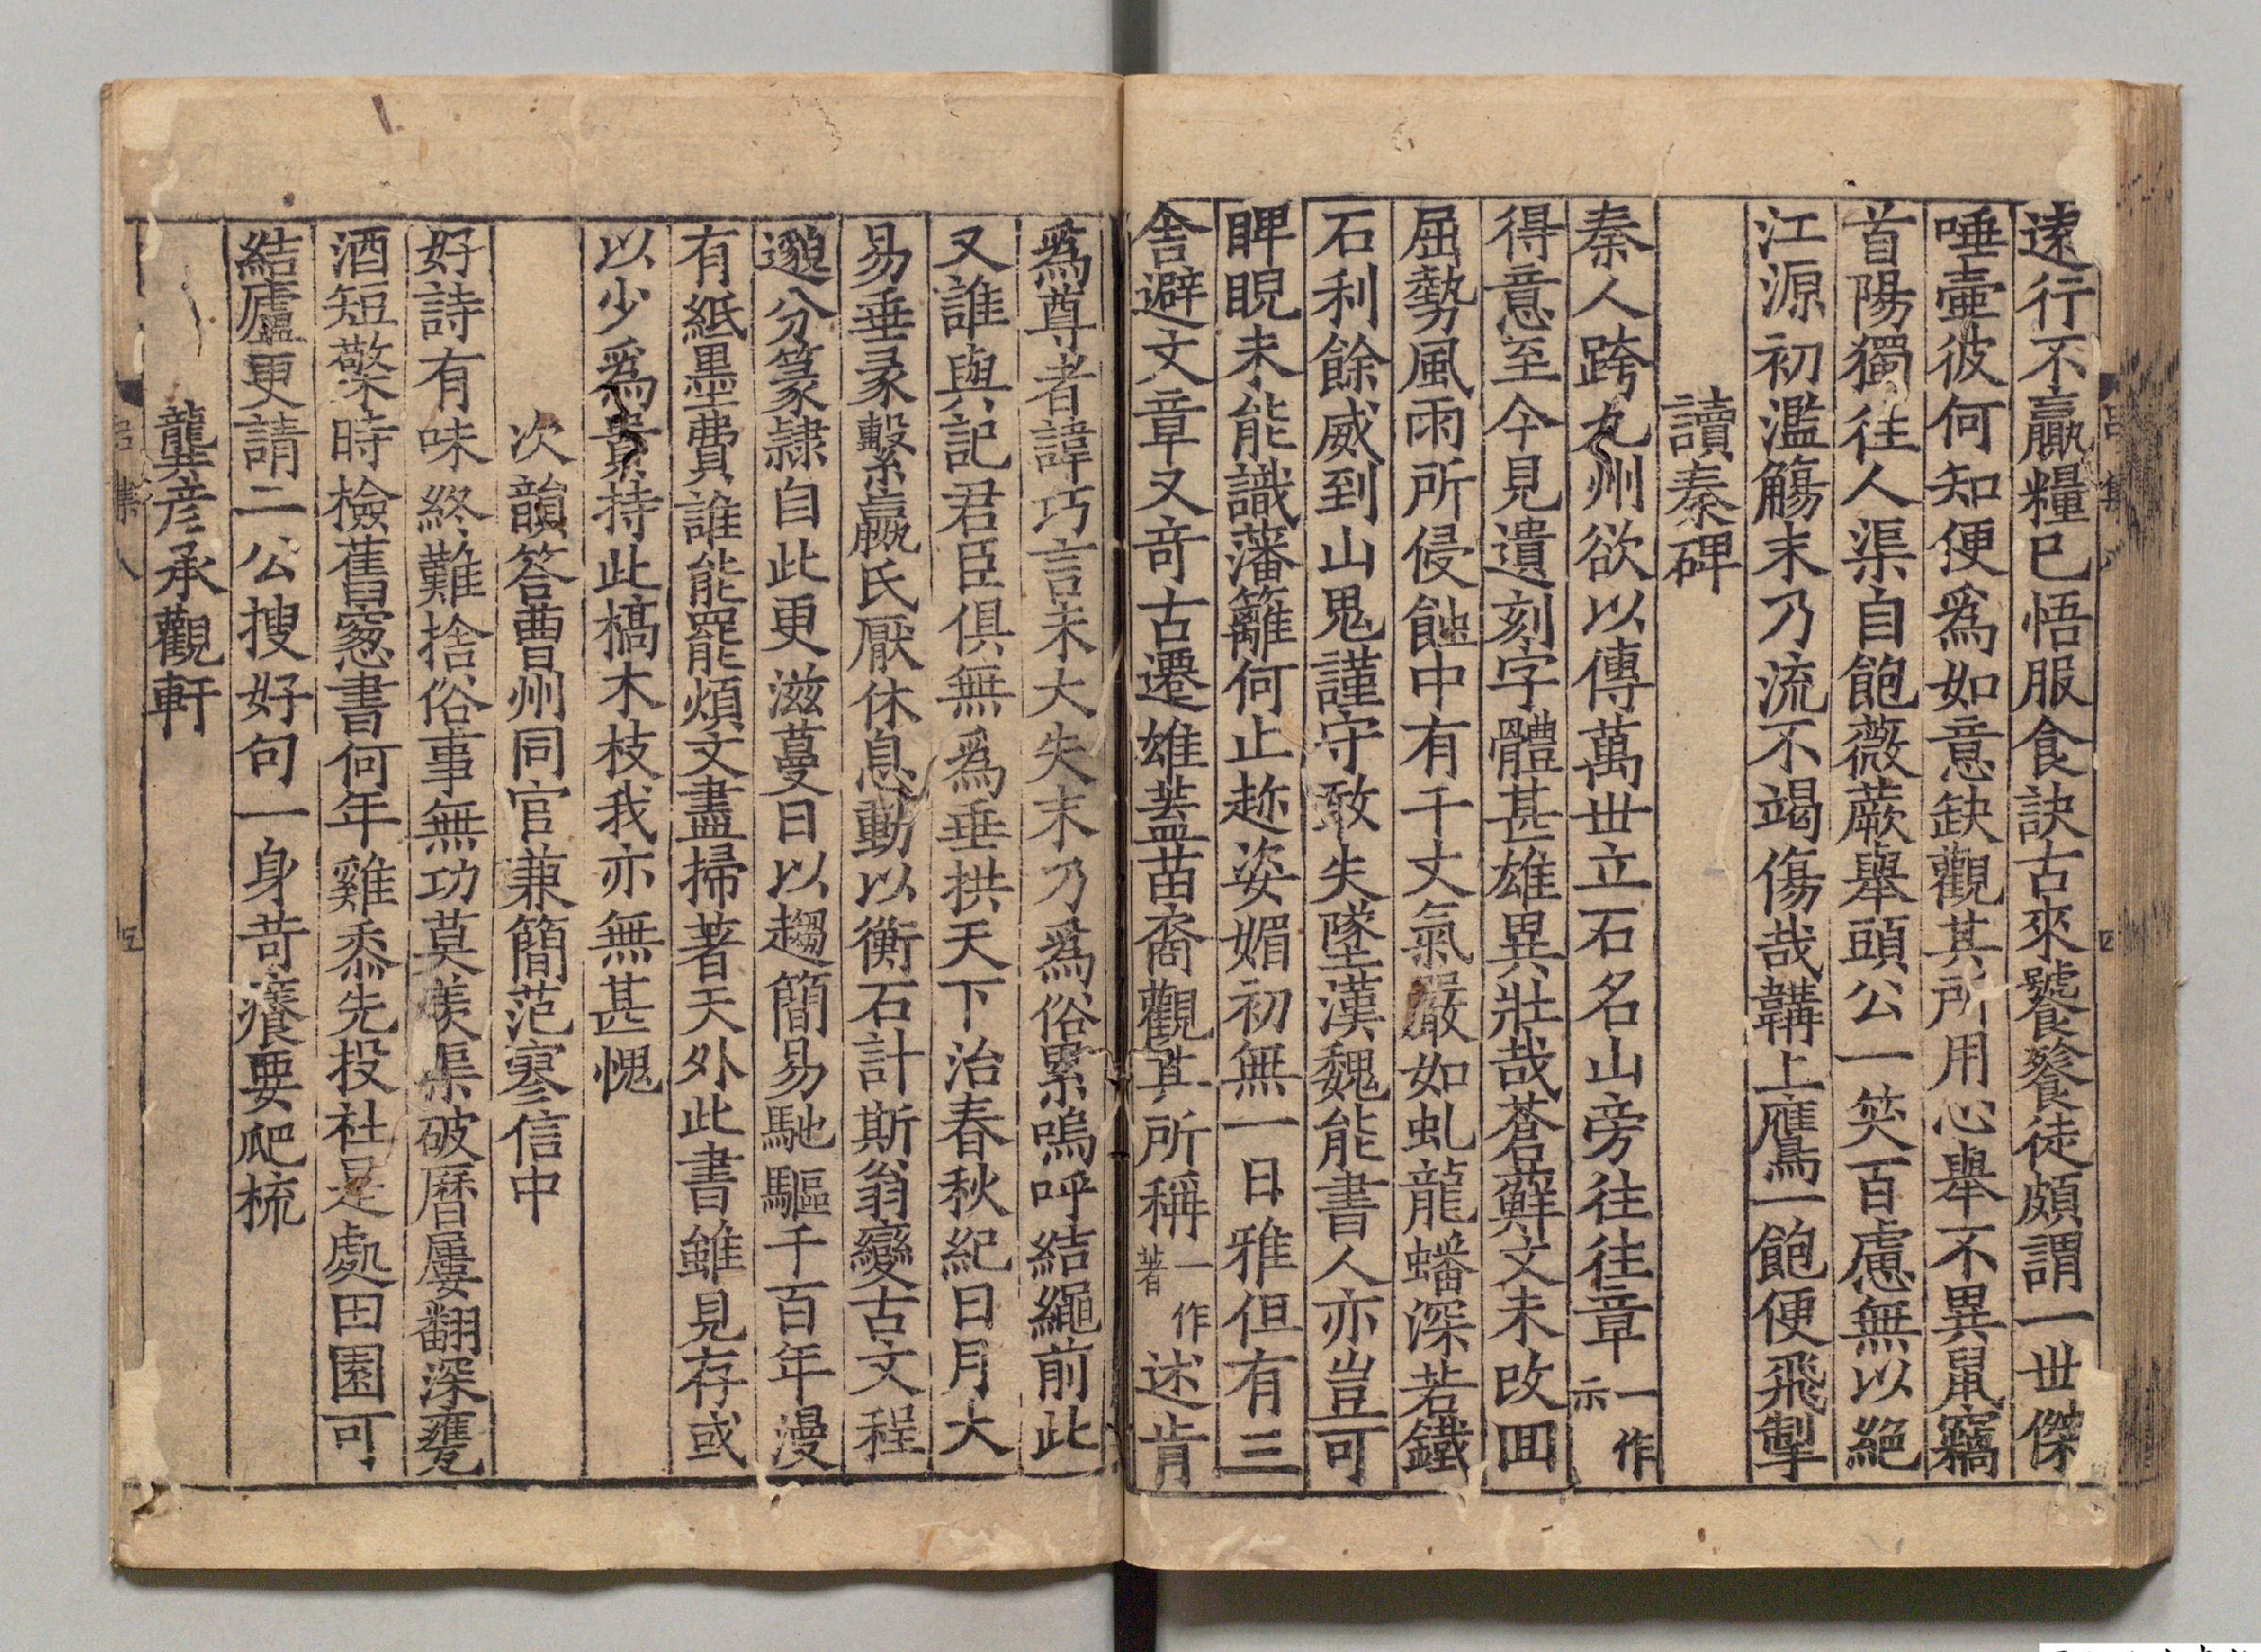 遠行不贏糧已悟服食訣古來饕餮徒頗謂一世傑
唾壷彼何知便爲如意缺觀其所用心舉不異鼠竊
首陽獨徃人渠自飽薇蕨舉頭公一笑百慮無以絕
江源初濫觴末乃流不竭傷哉韝上鷹一飽便飛掣
讀秦碑
秦人跨九州欲以傳萬世立石名山旁徃徃章一作示
得意至今見遺刻字體甚雄異壯哉蒼蘚文未改囬
屈勢風雨所侵蝕中有千丈氣嚴如虬龍蟠深若鐵
石利餘威到山鬼謹守敢失墜漢魏能書人亦豈可
睥睨未能識藩籬何止趂姿媚初無一日雅但有三
舎避文章又竒古遷雄葢苗裔觀其所稱一作著述肯
爲尊者諱巧言未大失末乃爲俗累嗚呼結繩前此
又誰與記君臣俱無爲垂拱天下治春秋紀日月大
易垂彖繫嬴氏厭休息動以衡石計斯翁變古文程
邈分篆隷自此更滋蔓日以趨簡易馳驅千百年漫
有紙墨費誰能罷煩文盡掃著天外此書雖見存或
以少爲貴持此槁木枝我亦無甚愧
次韻答曹州同官兼簡范寥信中
好詩有味終難捨俗事無功莫羨渠破曆屢翻深甕
酒短檠時檢舊窻書何年雞黍先投社是處田園可
結廬更請二公搜好句一身苛癢要爬梳
龔彦承觀軒